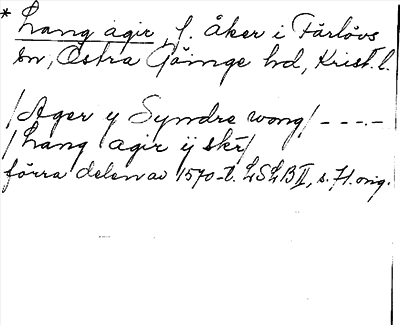 * Lang agir, f. åker i Färlövs
sn, Östra Göinge hd, Krist. l.
/Ager y Syndre wong/ ----.-
/Lang agir ij skr/
förra delen av 1570-t. LSLB II, s. 71. orig.